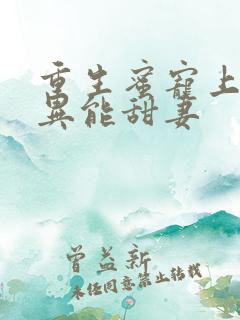 重生蜜寵上
異能甜妻
曾益新
未经同意禁止转载